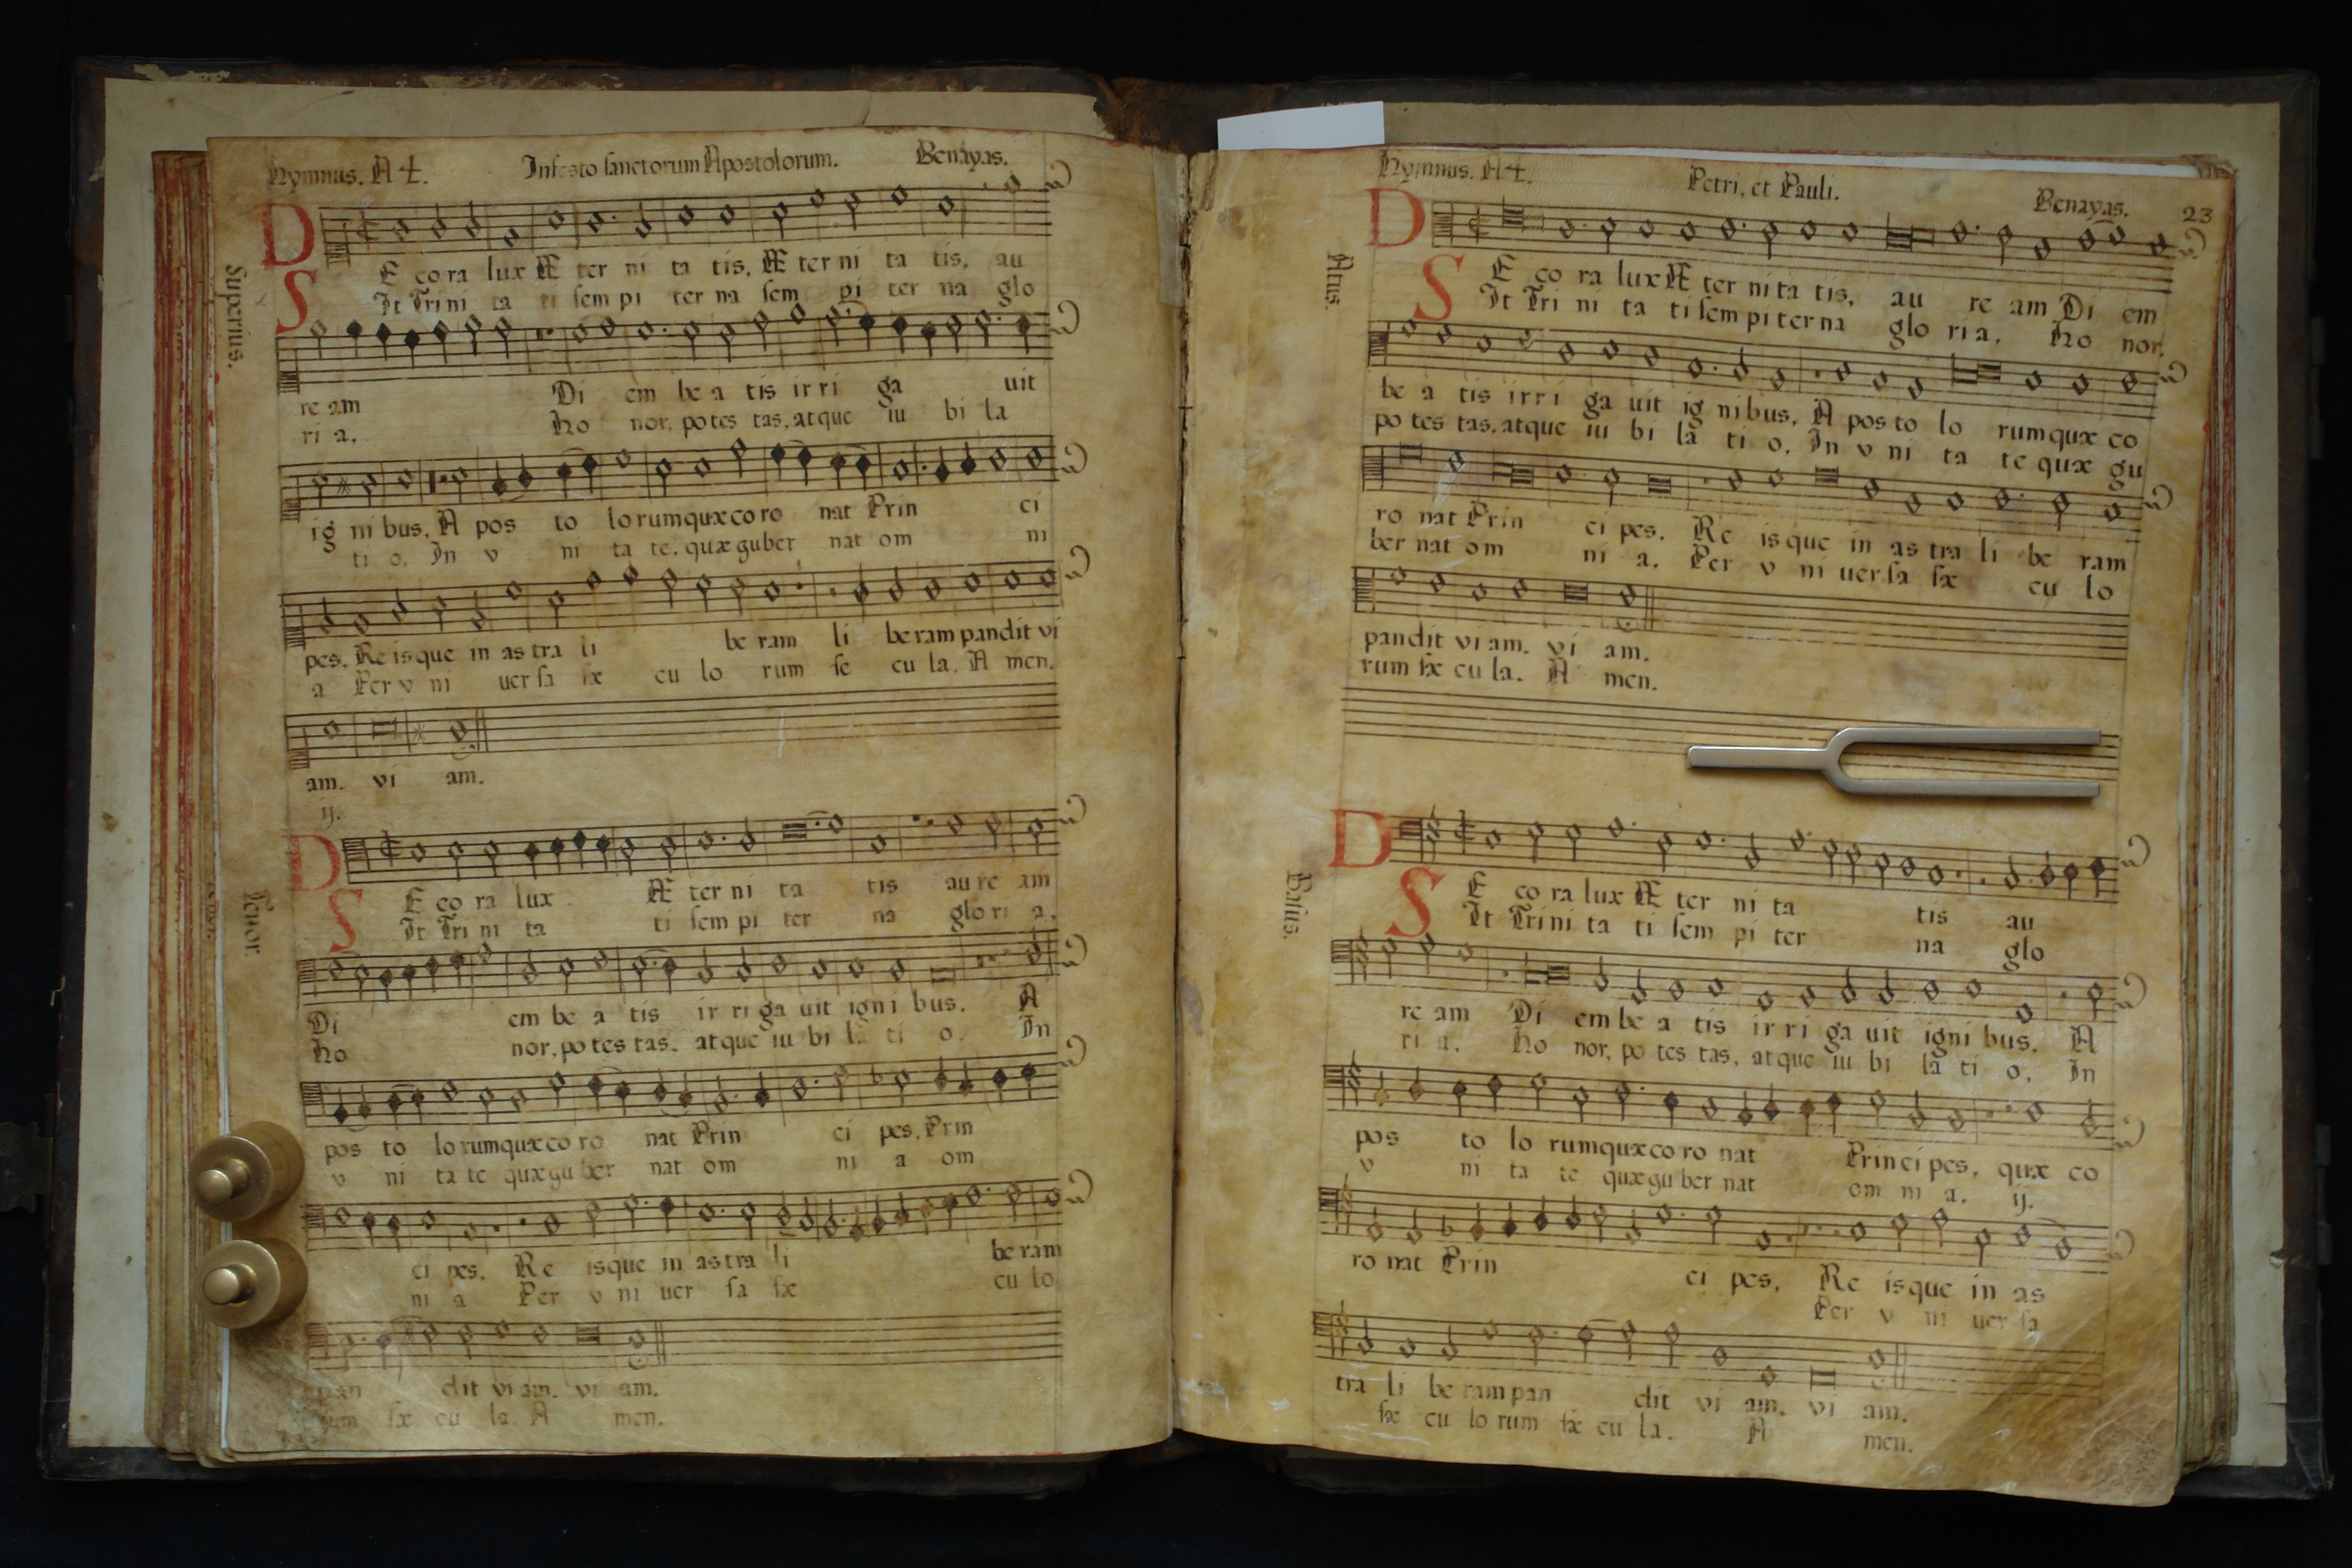 Hymnus. A 4. In festo sanctorum Apostolorum. Benayas.
Superius.
DE co ra lux Æ ter ni ta tis, Æ ter ni ta tis, au
SIt Tri ni ta ti sem pi ter na sem pi ter na glo
re am Di em be a tis ir ri ga uit
ri a, Ho nor, po tes tas, at que iu bi la
ig ni bus, A pos to lo rum quæ co ro nat Prin ci
ti o, In v ni ta te, quæ gu ber nat om ni
pes, Re is que in as tra li be ram li be ram pan dit vi
a Per v ni uer sa sæ cu lo rum se cu la. A men.
am. vi am.
ij.
Tenor.
DE co ra lux Æ ter ni ta tis au re am
SIt Tri ni ta ti sem pi ter na glo ri a,
Di em be a tis ir ri ga uit igni bus, A
Ho nor, po tes tas, at que iu bi la ti o, In
pos to lo rum quæ co ro nat Prin ci pes, Prin
v ni ta te quæ gu ber nat om ni a om
ci pes, Re is que in as tra li be ram
ni a Per v ni uer sa sæ cu lo
pan dit vi am. vi am.
rum sæ cu la. A men.
Hymnus. A 4. Petri, et Pauli. Benayas. 23
Altus.
DE co ra lux Æ ter ni ta tis, au re am Di em
SIt Tri ni ta ti sem pi ter na glo ri a, Ho nor,
be a tis ir ri ga uit ig ni bus, A pos to lo rum quæ co
po tes tas, at que iu bi la ti o, In v ni ta te quæ gu
ro nat Prin ci pes, Re is que in as tra li be ram
ber nat om ni a, Per v ni uer sa sæ cu lo
pan dit vi am. vi am.
rum sæ cu la. A men.
Basus.
DE co ra lux Æ ter ni ta tis au
SIt Tri ni ta ti sem pi ter na glo
re am Di em be a tis ir ri ga uit igni bus, A
ri a, Ho nor, po tes tas, at que iu bi la ti o, In
pos to lo rum quæ co ro nat Prin ci pes, quæ co
v ni ta te quæ gu ber nat om ni a, ij.
ro nat Prin ci pes, Re is que in as
Per v ni uer sa
tra li be ram pan dit vi am. vi am.
sæ cu lo rum sæ cu la. A men.